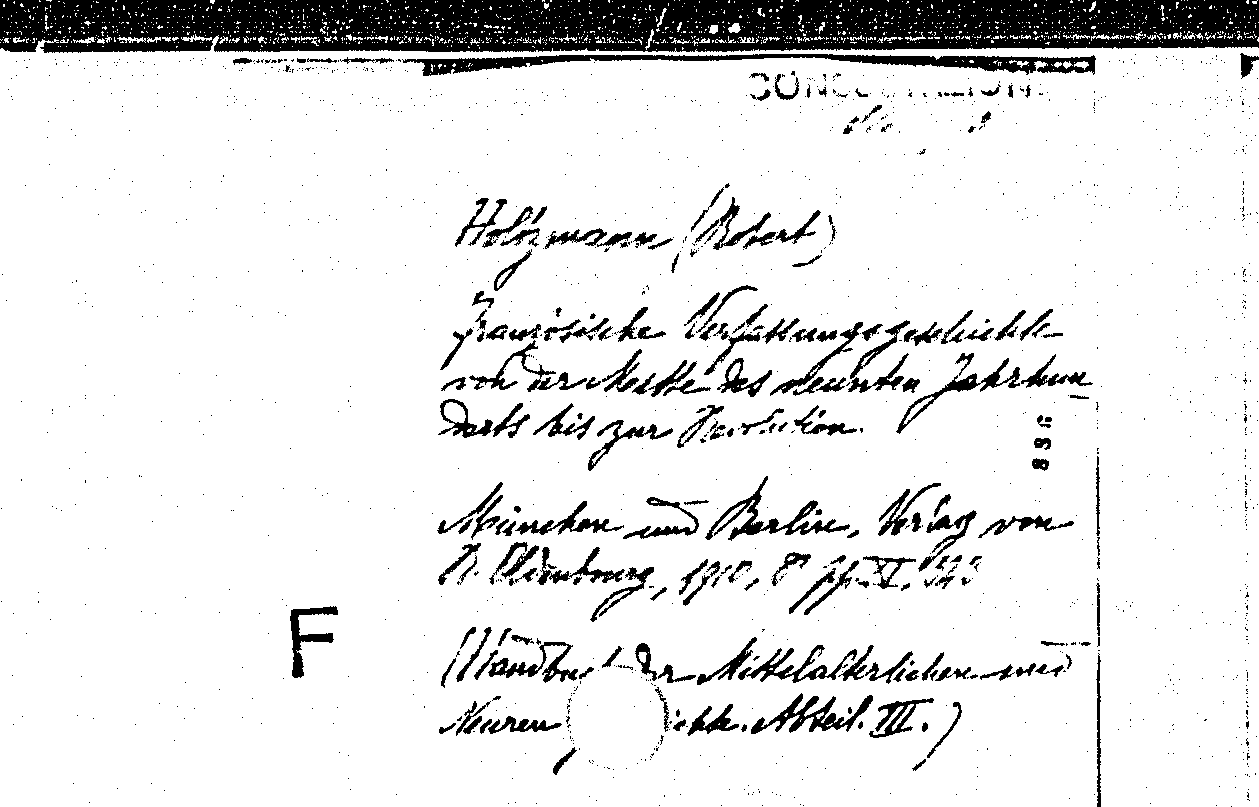 CONSULTATION
Holtzmann (Robert)
Französische Verfassungsgeschichte
von der Mitte des neunten Jahrhun
derts bis zur Revolution.
886
München und Berlin, Verlag von
R. Oldenbourg, 1910, 8° pp. XI, 543
F
(Handbuch der Mittelalterlichen und
Neuren ichte. Abteil. III.)